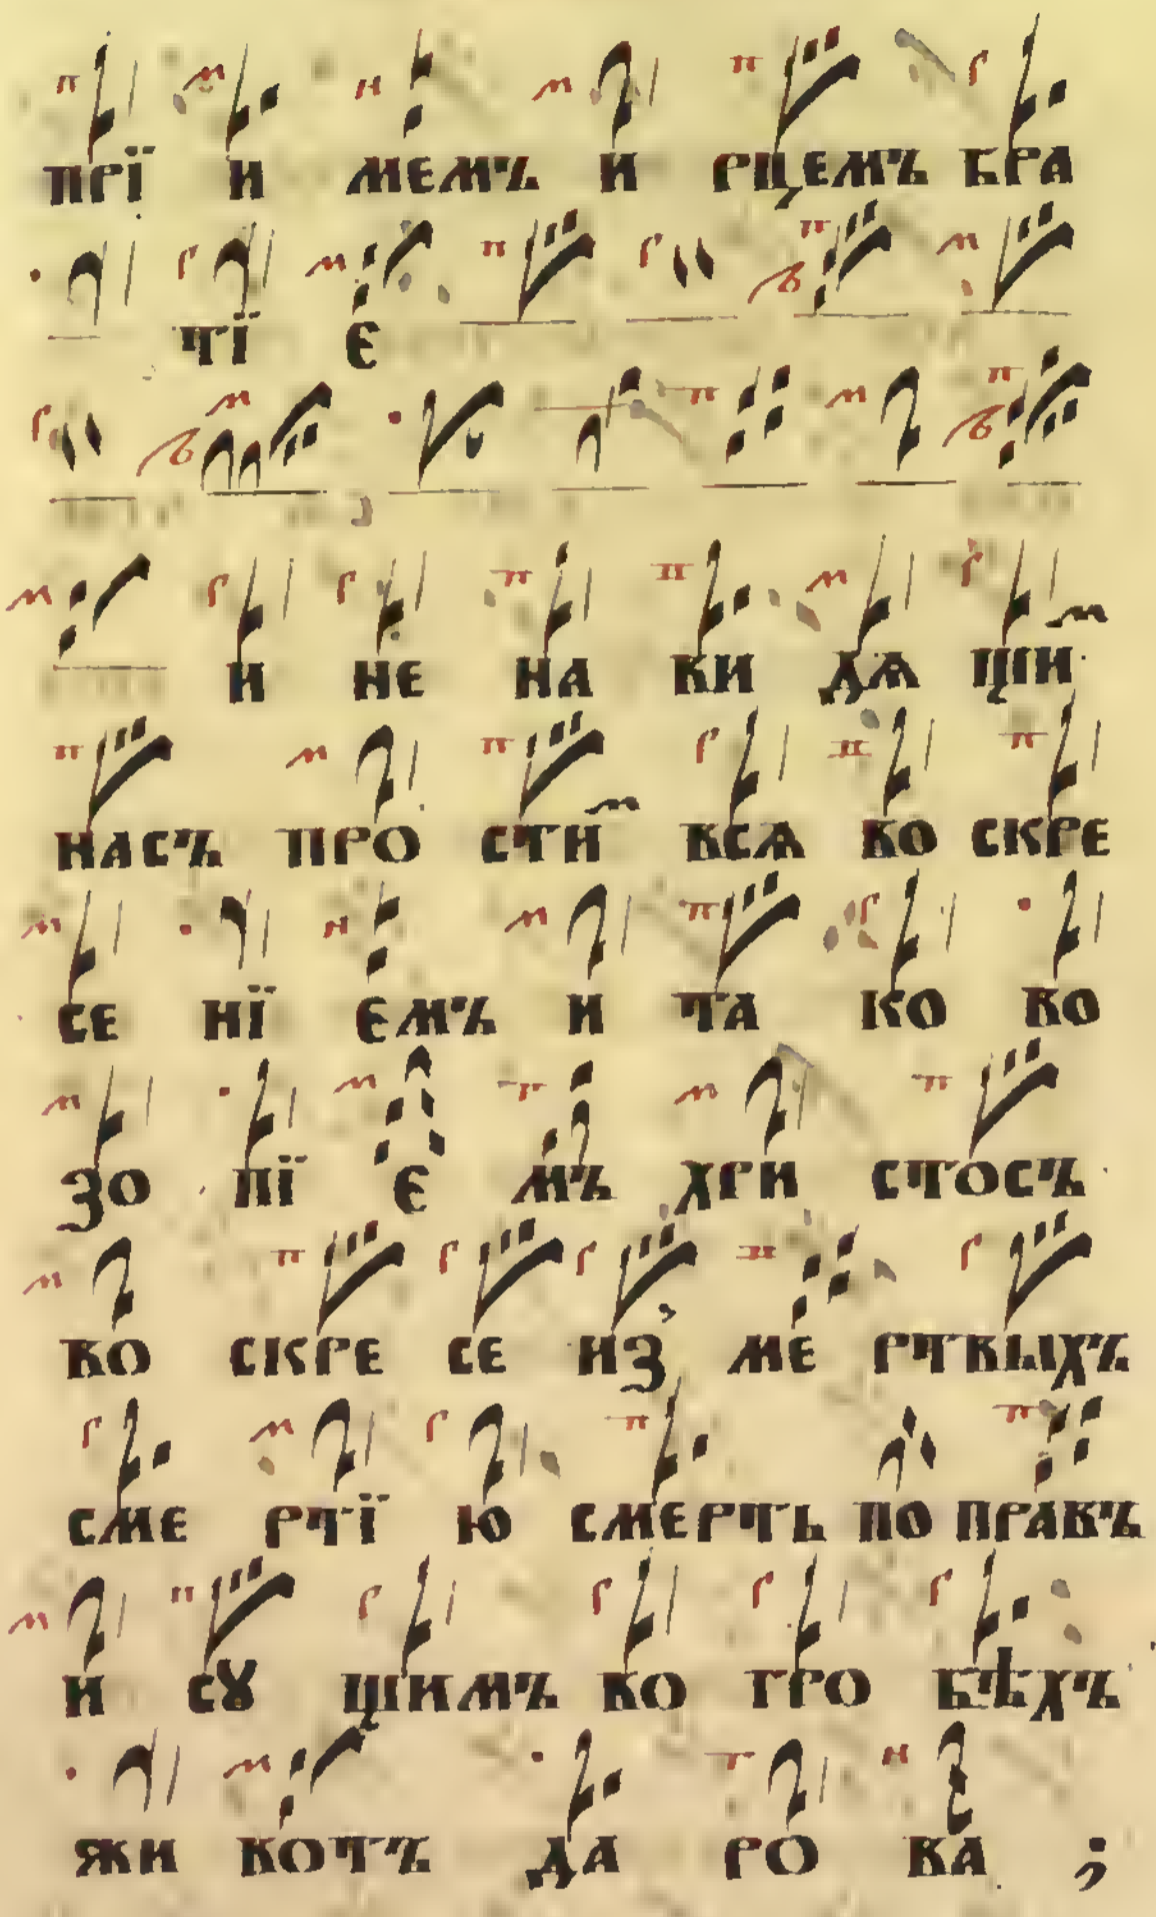 прї и мемъ и рцемъ бра
тї є
и не на ви дѧ щи м
насъ про сти м всѧ во скре
се нї ємъ и та ко во
зо пї є мъ хри стосъ
во скре се из ме ртвыхъ
сме ртї ю смерть по правъ
и сꙋ щимъ во гро бѣхъ
жи вотъ да ро ва ;